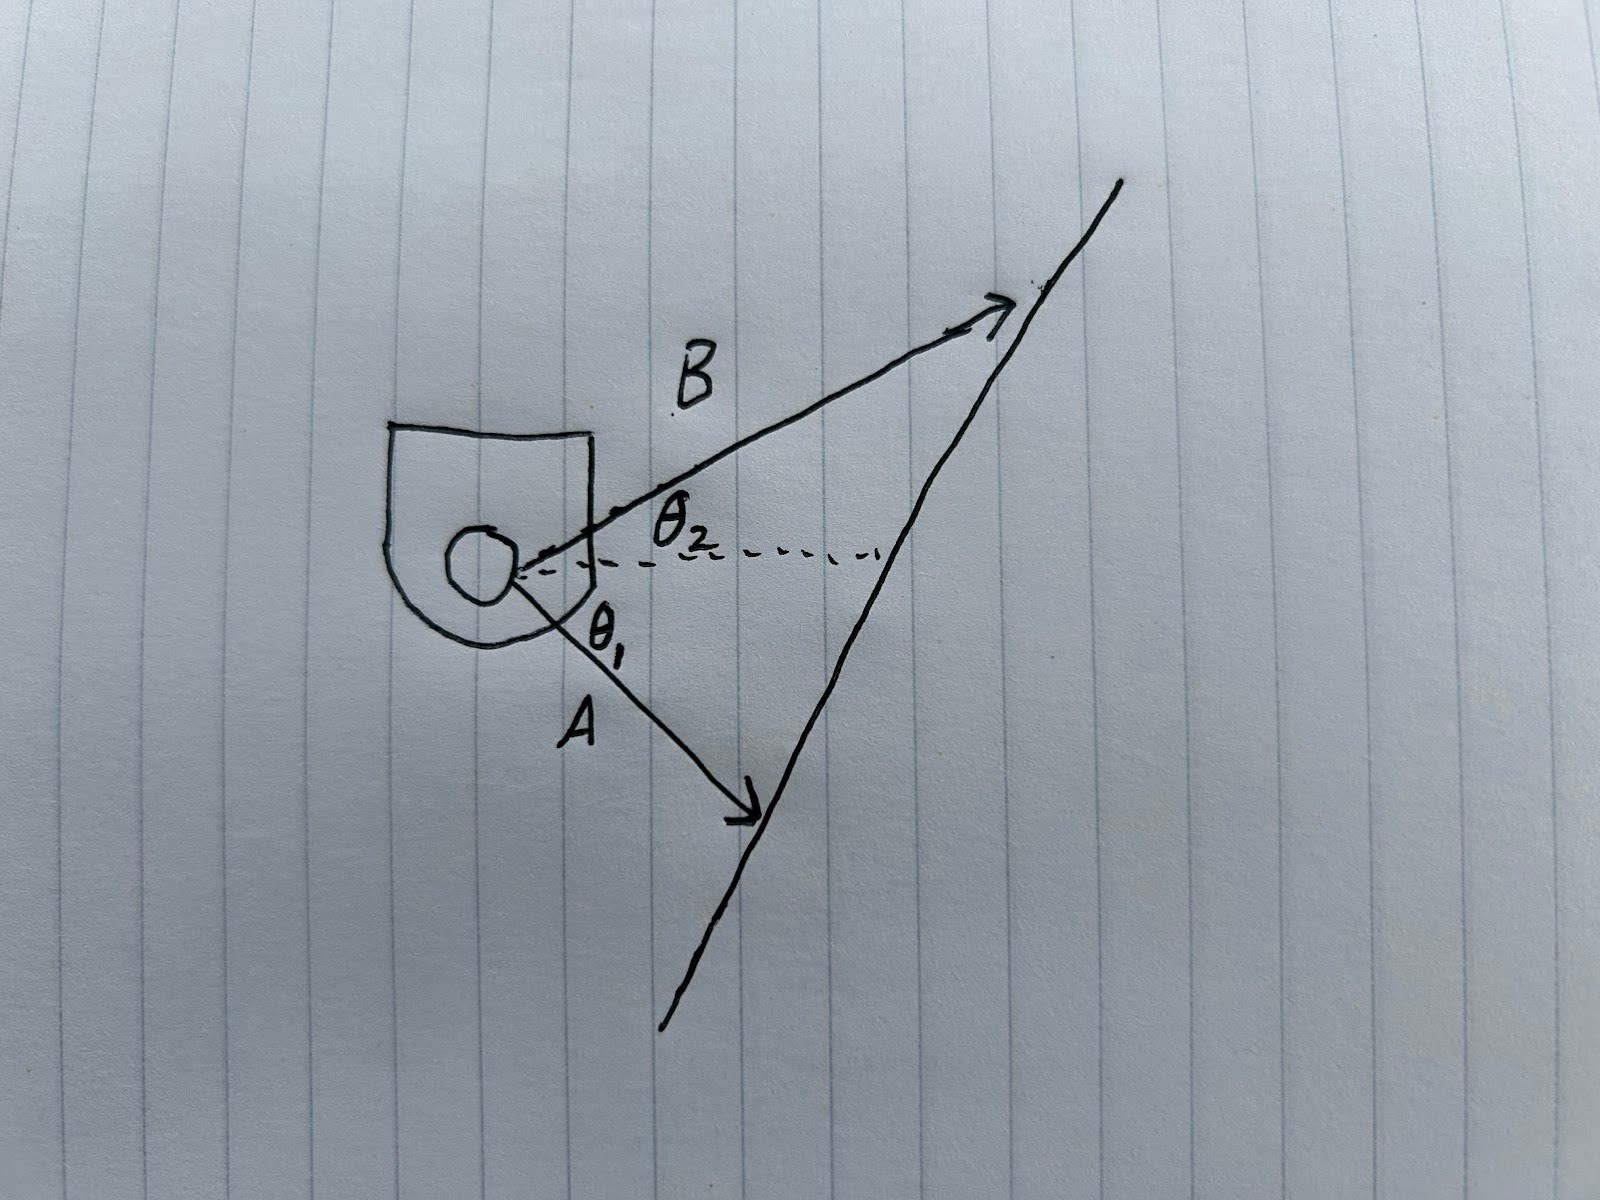 B
θ₂
θ₁
A